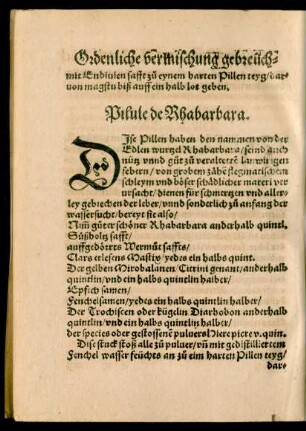 Ordenliche vermischung gebreüch-
mit Endiuien safft zů eynem harten Pillen teyg/ dar-
uon magstu biß auff ein halb lot geben.
Pilule de Rhabarbara.
DIse Pillen haben den nammen von der
Edlen wurtzel Rhabarbara/ seind auch
nütz vnnd gůt zů veraltertē langwirigen
febern/ von grobem zähē flegmatischem
schleym vnd böser schädlicher materi ver
vrsacht/ dienen für schmertzen vnd aller-
ley gebrechen der leber/ vnnd sonderlich zů anfang der
wassersucht/ bereyt sie also/
Nim gůter schöner Rhabarbara anderhalb quintl.
Süßholtz safft/
auffgedörrts Wermůt saffts/
Clars erlesens Mastix/ yedes ein halbs quint.
Der gelben Mirobalanen/ Citrini genant/ anderhalb
quintlin/ vnd ein halbs quintlin halber/
Epfich samen/
Fenchelsamen/ yedes ein halbs quintlin halber/
Der Trochiscen oder kügelin Diarhodon anderhalb
quintlin/ vnd ein halbs quintlin halber/
der species oder gestossene puluers Hiere picre v. quin.
Dise stuck stoß alle zů puluer/ vñ mit gedistilliertem
Fenchel wasser feüchts an zů ein harten Pillen teyg/
dar-